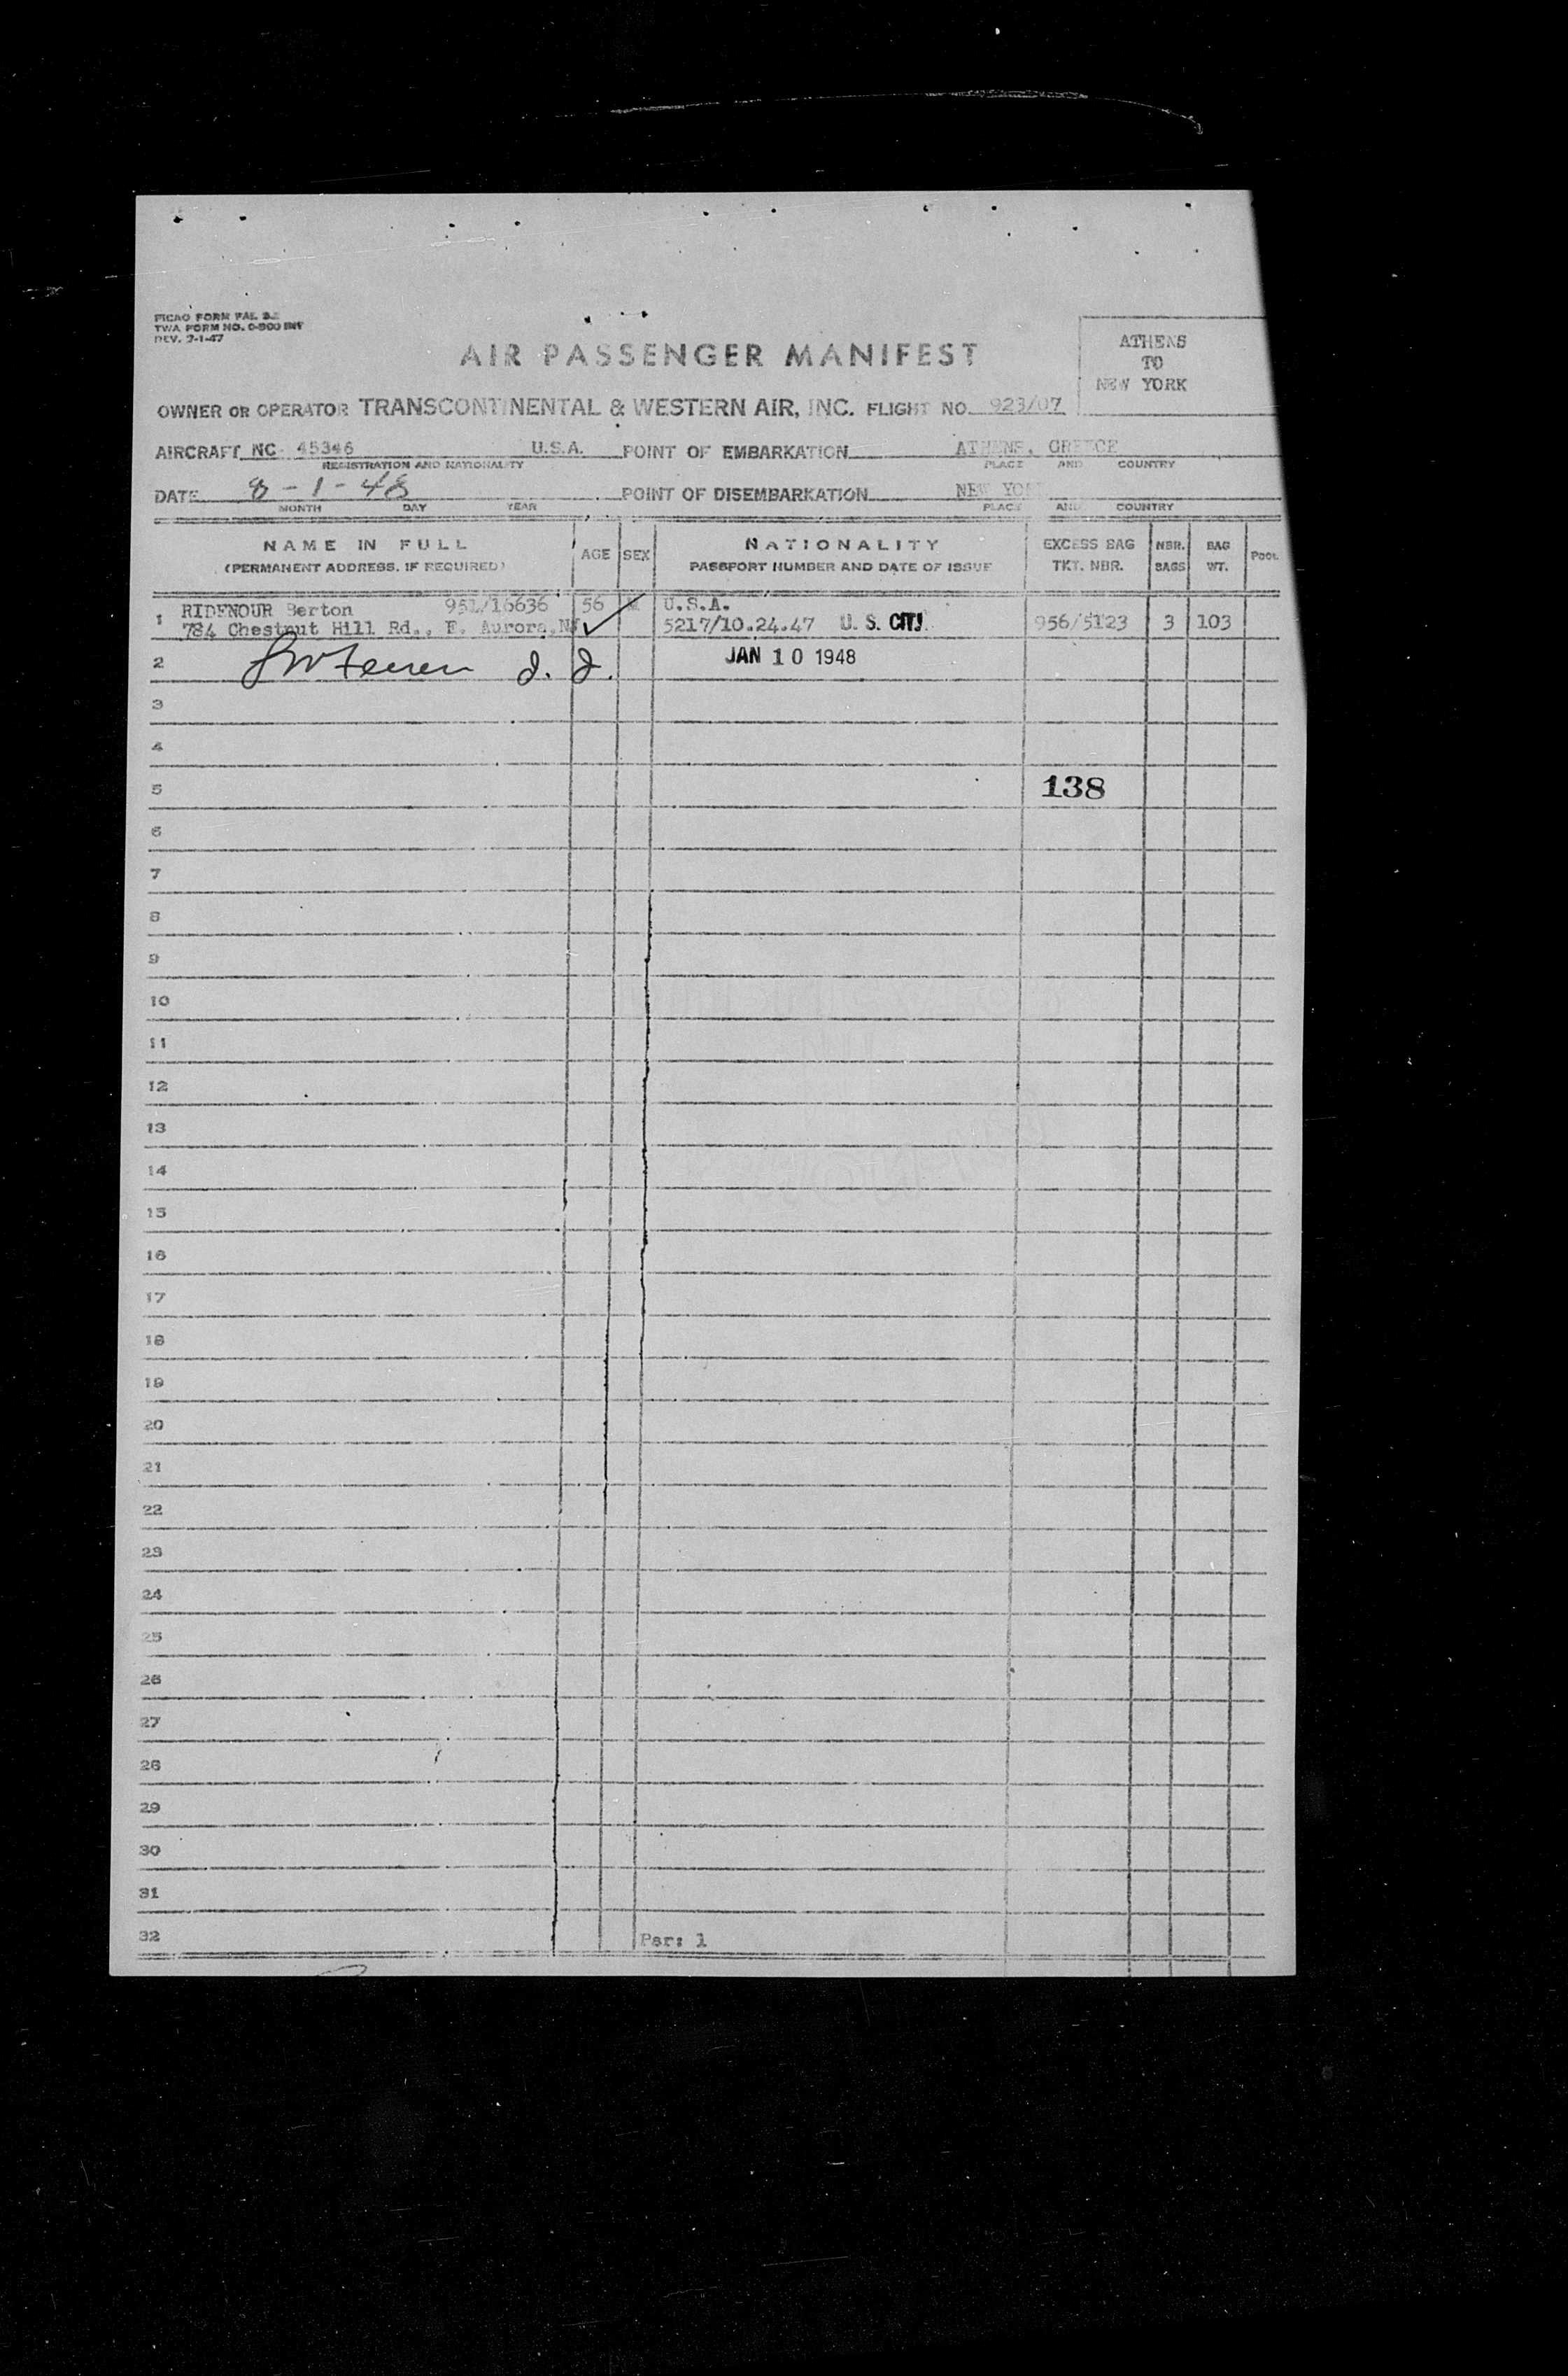 PICAO FORM FAL
TWA FORM NO. 0-800 INT
REV. 7-1-47
ATHENS
TO
NEW YORK
AIR PASSENGER MANIFEST
OWNER OR OPERATOR TRANSCONTINENTAL & WESTERN AIR, INC. FLIGHT NO. 923/07
AIRCRAFT NC 45346 U.S.A. POINT OF EMBARKATION ATHENS, GREECE
REGISTRATION AND NATIONALITY PLACE AND COUNTRY
DATE 8-1-48 POINT OF DISEMBARKATION NEW YORK
MONTH DAY YEAR PLACE AND COUNTRY
NAME IN FULL AGE SEX NATIONALITY EXCESS BAG NBR. BAG POOL
(PERMANENT ADDRESS, IF REQUIRED) PASSPORT NUMBER AND DATE OF ISSUE TKT. NBR. BAGS WT.
1 RIDENOUR Berton 951/16636 56 M U.S.A.
784 Chestnut Hill Rd., E. Aurora, NY 5217/10.24.47 U. S. CIT. 956/5123 3 103
2 JAN 10 1948
3
4
5 138
6
7
8
9
10
11
12
13
14
15
16
17
18
19
20
21
22
23
24
25
26
27
28
29
30
31
32 Per: 1